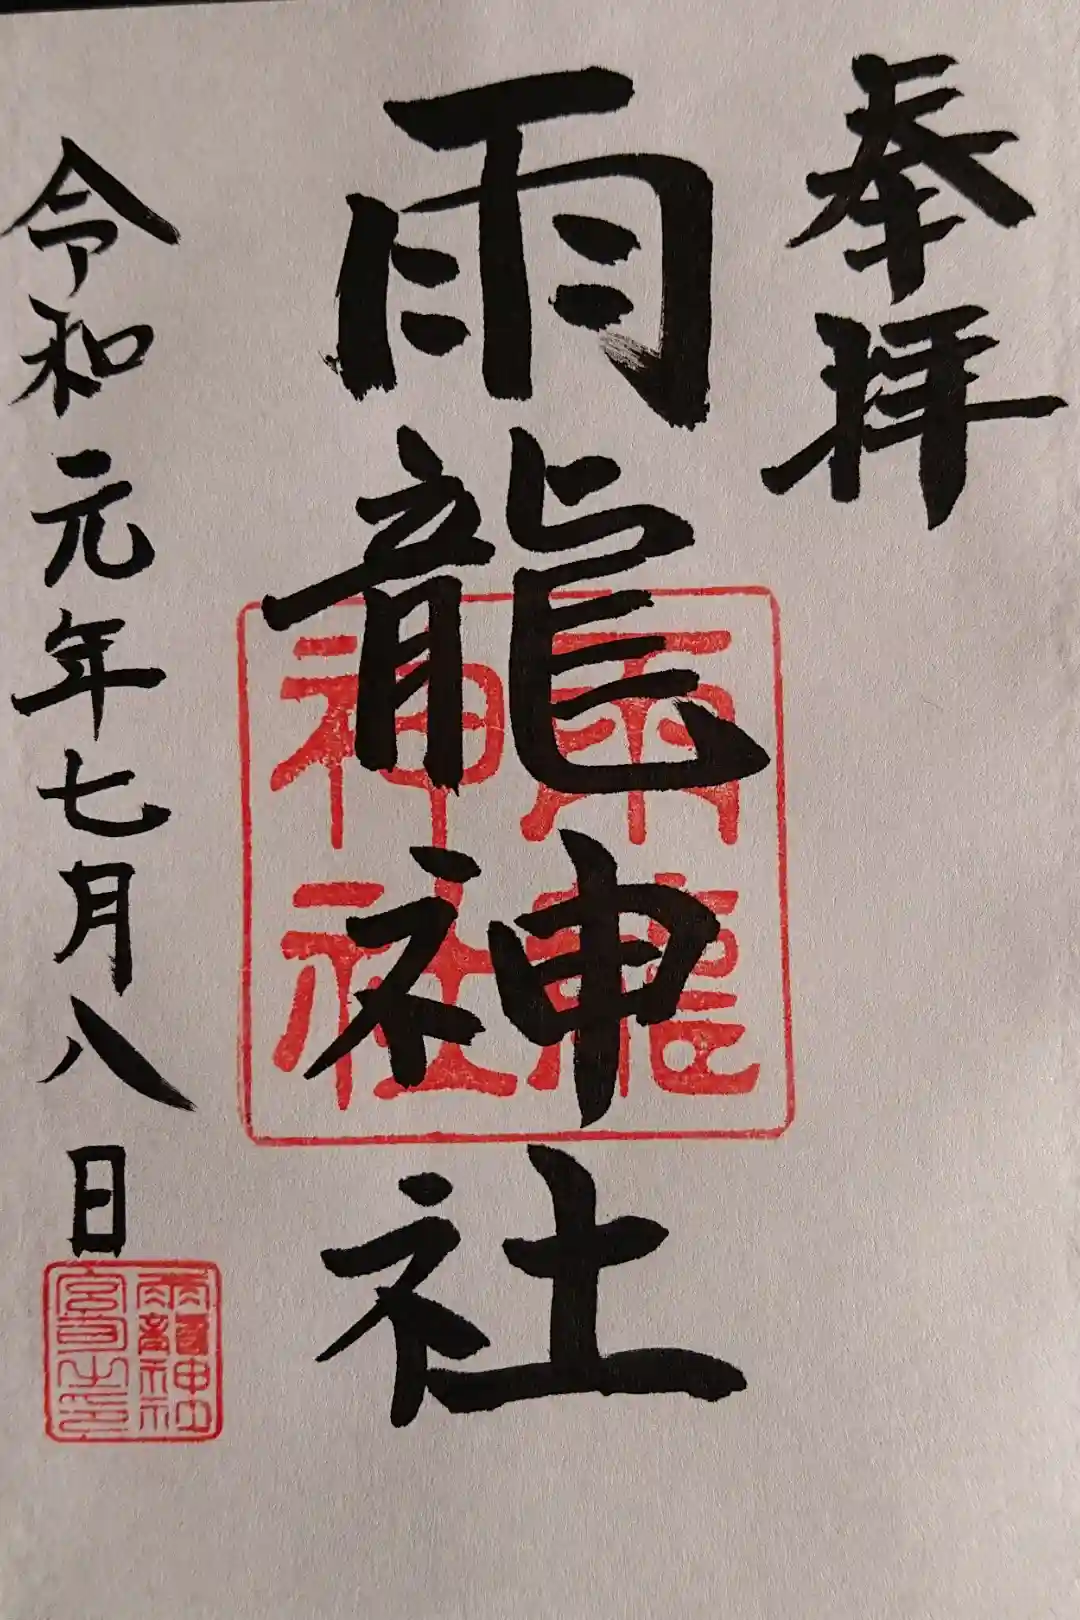 奉拝
雨龍神社
雨龍
神社
令和元年七月八日
雨龍神社
宮之印